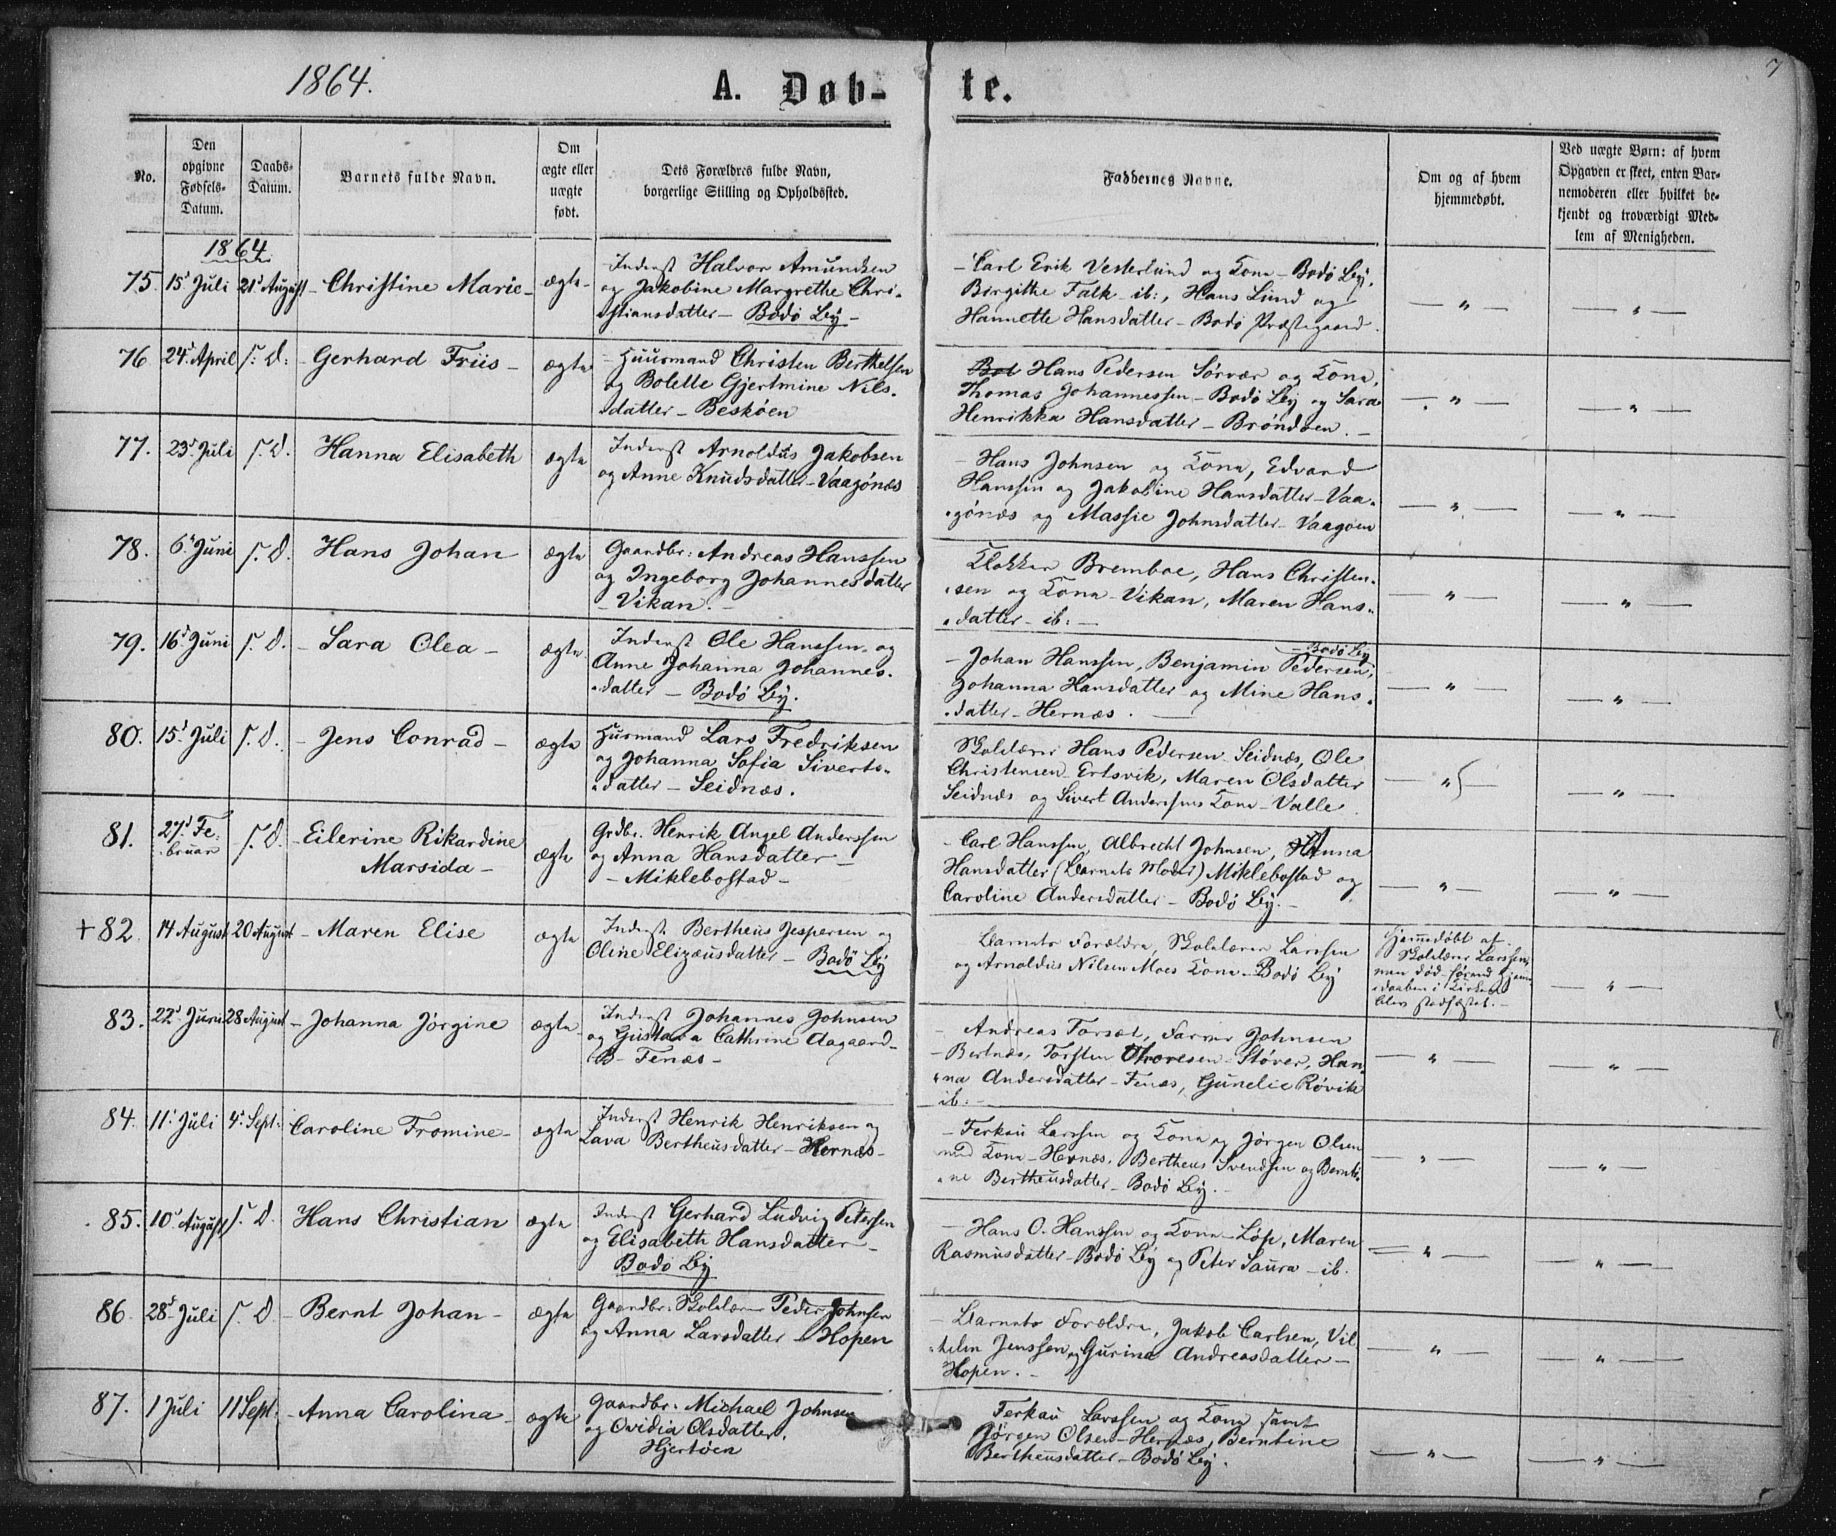 1864.
A. Døb-
te.
7
No.
Den
opgivne
Fødsels-
Datum.
Daabs-
Datum.
Barnets fulde Navn.
Om
ægte eller
uægte
født.
Dets Forældres fulde Navn,
borgerlige Stilling og Opholdssted.
Faddernes Navne.
Om og af hvem
hjemmedøbt.
Ved uægte Børn: af hvem
Opgaven er skeet, enten Bar-
nemoderen eller hvilket be-
kjendt og troværdigt Med-
lem af Menigheden.
1864
75. 15' Juli 21' August - Christine Marie - ægte -
Inderst Halvor Amundsen
og Jakobine Margrethe Chri-
stiansdatter - Bodø By -
- Carl Erik Vesterlund og Kone - Bodø By,
Birgithe Falk - ib:, Hans Lund og
Hannette Hansdatter - Bodø Præstegaard.
— " —
— " —
76 24' April S. D. - Gerhard Friis - ægte
- Huusmand Christen Berthelsen
og Bolette Gjertmine Nils-
datter - Beskøen
Bod Hans Pedersen Sørvær og Kone,
Thomas Johannessen - Bodø By og Sara
Henrikka Hansdatter - Brøndøen. -
— " —
— " —
77. 23' Juli S. D. Hanna Elisabeth ægte
Inderst Arnoldus Jakobsen
og Anne Knudsdatter - Vaagønæs
- Hans Johnsen og Kone, Edvard
Hanssen og Jakobine Hansdatter - Vaa-
gønæs og Massie Johnsdatter - Vaagøen
— " —
— " —
78. 6' Juni S. D. Hans Johan ægte
Gaardbr: Andreas Hanssen
og Ingeborg Johannesdatter
- Vikan. -
Klokker Bremboe, Hans Christen-
sen og Kone - Vikan, Maren Hans-
datter - ib: -
— " —
— " —
79. 16' Juni S. D. - Sara Olea - ægte
Inderst Ole Hanssen og
Anne Johanna Johannes-
datter - Bodø By.
- Bodø By
- Johan Hanssen, Benjamin Pedersen,
Johanna Hansdatter og Mine Hans-
datter - Hernæs. -
— " —
— " —
80. 15' Juli S. D. - Jens Conrad - ægte
Husmand Lars Fredriksen
og Johanna Sofia Siverts-
datter - Seidnæs.
Skolelærer Hans Pedersen - Seidnæs, Ole
Christensen - Ertsvik, Maren Olsdatter
Seidnæs og Sivert Anderssens Kone - Valle
— " —
— " —
81. 27' Fe-
bruar S. D. - Eilerine Rikardine
Marsida - ægte
Grdbr. Henrik Angel Anderssen
og Anna Hansdatter -
- Miklebostad -
- Carl Hanssen, Albrecht Johnsen, Anna
Hansdatter (Barnets Moder) Miklebostad og
Caroline Andersdatter - Bodø By. -
— " —
— " —
+ 82 14 August 20 August - Maren Elise ægte
Inderst Bertheus Jespersen og
Oline Elizæusdatter - Bodø By
Barnets Forældre, Skolelærer Larssen
og Arnoldus Nilsen Moes Kone - Bodø By
Hjemmedøbt af
Skolelærer Larssen,
men død førend Hjemme-
daaben i Kirken
blev stadfæstet. -
— " —
83. 22' Juni 28 August - Johanna Jørgine ægte
Inderst Johannes Johnsen
og Gustava Cathrine Aagaard -
B - Fenæs -
- Andreas Torset, Farver Johnsen
- Bertnæs, Torsten Thoresen - Støver, Han-
na Andersdatter - Fenæs, Gunelie Røvik
ib: -
— " —
— " —
84. 11' Juli 4' Sept: Caroline Fromine - ægte
Inderst Henrik Henriksen og
Lava Bertheusdatter - Hernæs -
- Ferkau Larssen og Kone og Jørgen Olsen
med Kone - Hernæs, Bertheus Svendsen og Bernti-
ne Bertheusdatter - Bodø By. -
— " —
— " —
85. 10' August S. D. Hans Christian ægte
Inderst Gerhard Ludvig Petersen
og Elisabeth Hansdatter -
Bodø By
- Hans O. Hanssen og Kone - Løp, Maren
Rasmusdatter - Bodø By og Peter Saura - ib.
— " —
— " —
86. 28' Juli S. D - Bernt Johan - ægte
Gaardbr: Skolelærer Peder Johnsen
og Anna Larsdatter - Hopen
- Barnets Forældre, Jakob Carlsen, Vil-
helm Jenssen og Gurina Andreasdatter -
Hopen. -
— " —
— " —
87. 1 Juli 11 Sept. - Anna Carolina - ægte
Gaardbr: Michael Johnsen
og Ovidia Olsdatter,
Hjertøen
Ferkau Larssen og Kone samt
Jørgen Olsen - Hernæs, Berntine
Bertheusdatter - Bodø By.
— " —
— " —